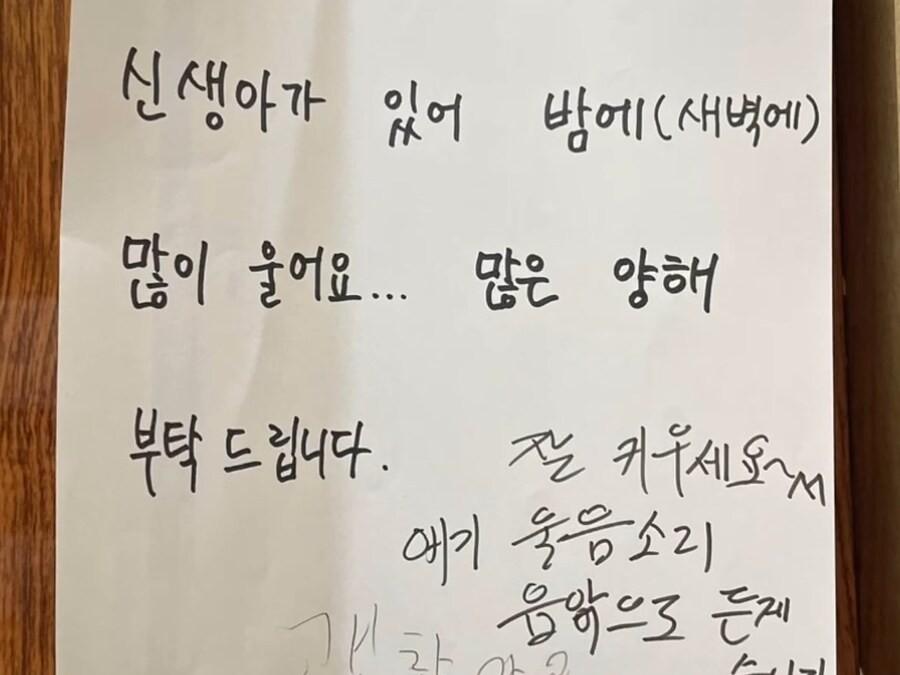 신생아가 있어 밤에(새벽에)
많이 울어요... 많은 양해
부탁 드립니다.
잘 키우세요~^^
애기 울음소리
음앆으로 든제